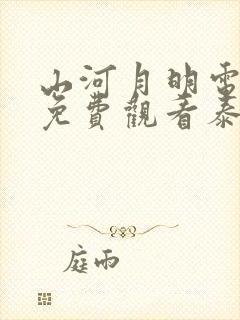 山河月明電
免費觀看泰
庭雨